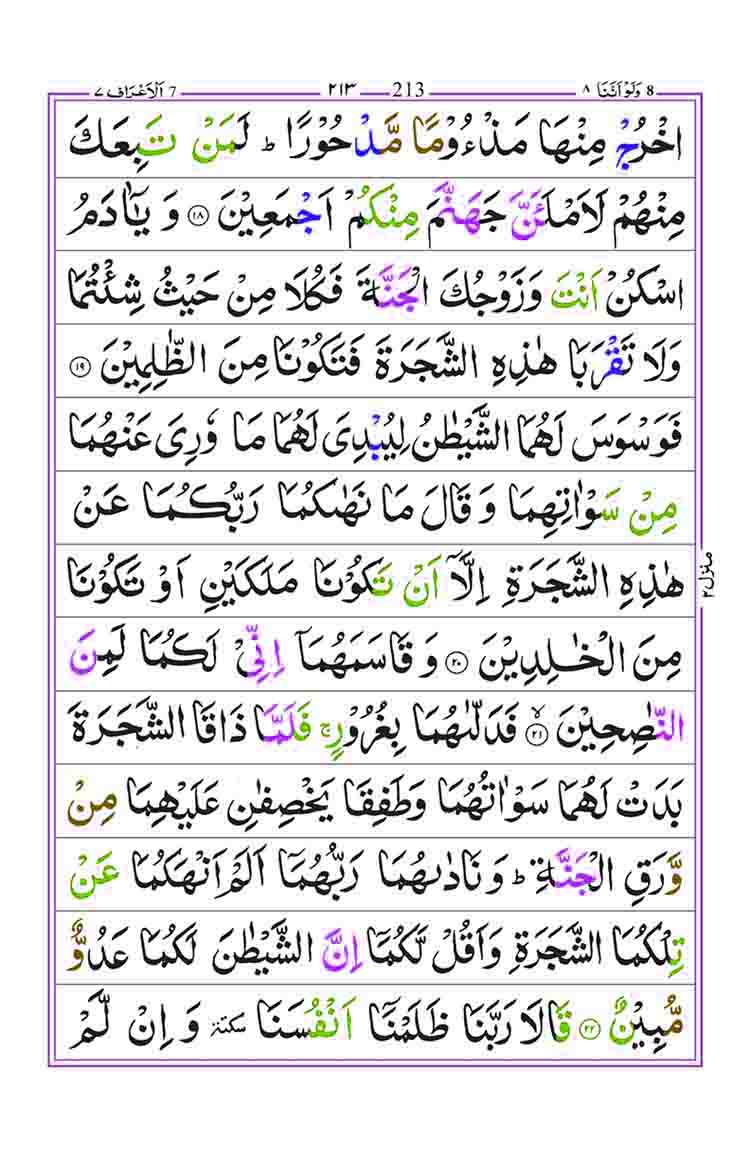 8 وَلَوْ اَنَّنَا ٨ 213 ٢١٣ 7 اَلْاَعْرَاف ٧
اخْرُجْ مِنْهَا مَذْءُوْمًا مَّدْحُوْرًا ؕ لَمَنْ تَبِعَكَ
مِنْهُمْ لَاَمْلَـَٔنَّ جَهَنَّمَ مِنْكُمْ اَجْمَعِيْنَ ۱۸ وَ يٰۤاٰدَمُ
اسْكُنْ اَنْتَ وَزَوْجُكَ الْجَنَّةَ فَكُلَا مِنْ حَيْثُ شِئْتُمَا
وَلَا تَقْرَبَا هٰذِهِ الشَّجَرَةَ فَتَكُوْنَا مِنَ الظّٰلِمِيْنَ ۱۹
فَوَسْوَسَ لَهُمَا الشَّيْطٰنُ لِيُبْدِيَ لَهُمَا مَا وٗرِيَ عَنْهُمَا
مِنْ سَوْاٰتِهِمَا وَ قَالَ مَا نَهٰىكُمَا رَبُّكُمَا عَنْ
هٰذِهِ الشَّجَرَةِ اِلَّاۤ اَنْ تَكُوْنَا مَلَكَيْنِ اَوْ تَكُوْنَا
مِنَ الْخٰلِدِيْنَ ۲۰ وَ قَاسَمَهُمَاۤ اِنِّيْ لَكُمَا لَمِنَ
النّٰصِحِيْنَ ۙ۲۱ فَدَلّٰىهُمَا بِغُرُوْرٍ ۚ فَلَمَّا ذَاقَا الشَّجَرَةَ
بَدَتْ لَهُمَا سَوْاٰتُهُمَا وَطَفِقَا يَخْصِفٰنِ عَلَيْهِمَا مِنْ
وَّرَقِ الْجَنَّةِ ؕ وَ نَادٰىهُمَا رَبُّهُمَاۤ اَلَمْ اَنْهَكُمَا عَنْ
تِلْكُمَا الشَّجَرَةِ وَاَقُلْ لَّكُمَاۤ اِنَّ الشَّيْطٰنَ لَكُمَا عَدُوٌّ
مُّبِيْنٌ ۲۲ قَالَا رَبَّنَا ظَلَمْنَاۤ اَنْفُسَنَا سكتة وَ اِنْ لَّمْ
منزل ٢